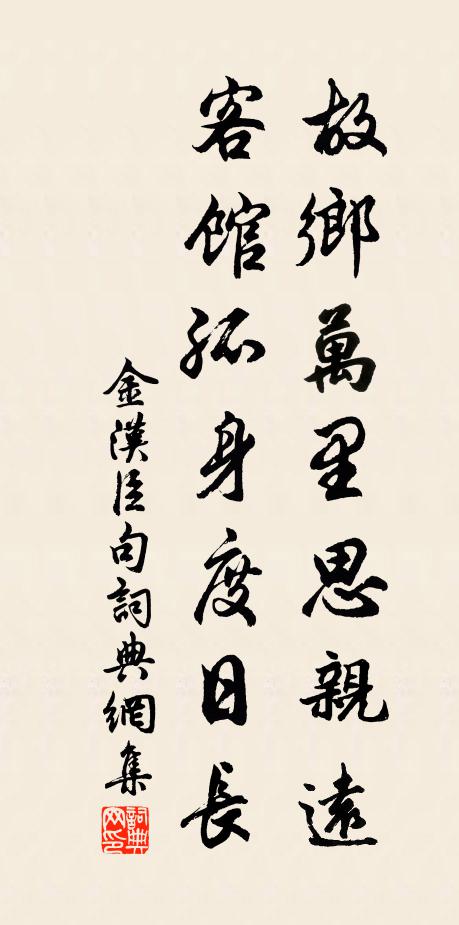 故鄉萬里思親遠
客館孤身度日長
金漢臣句詞典網集
詞典网印